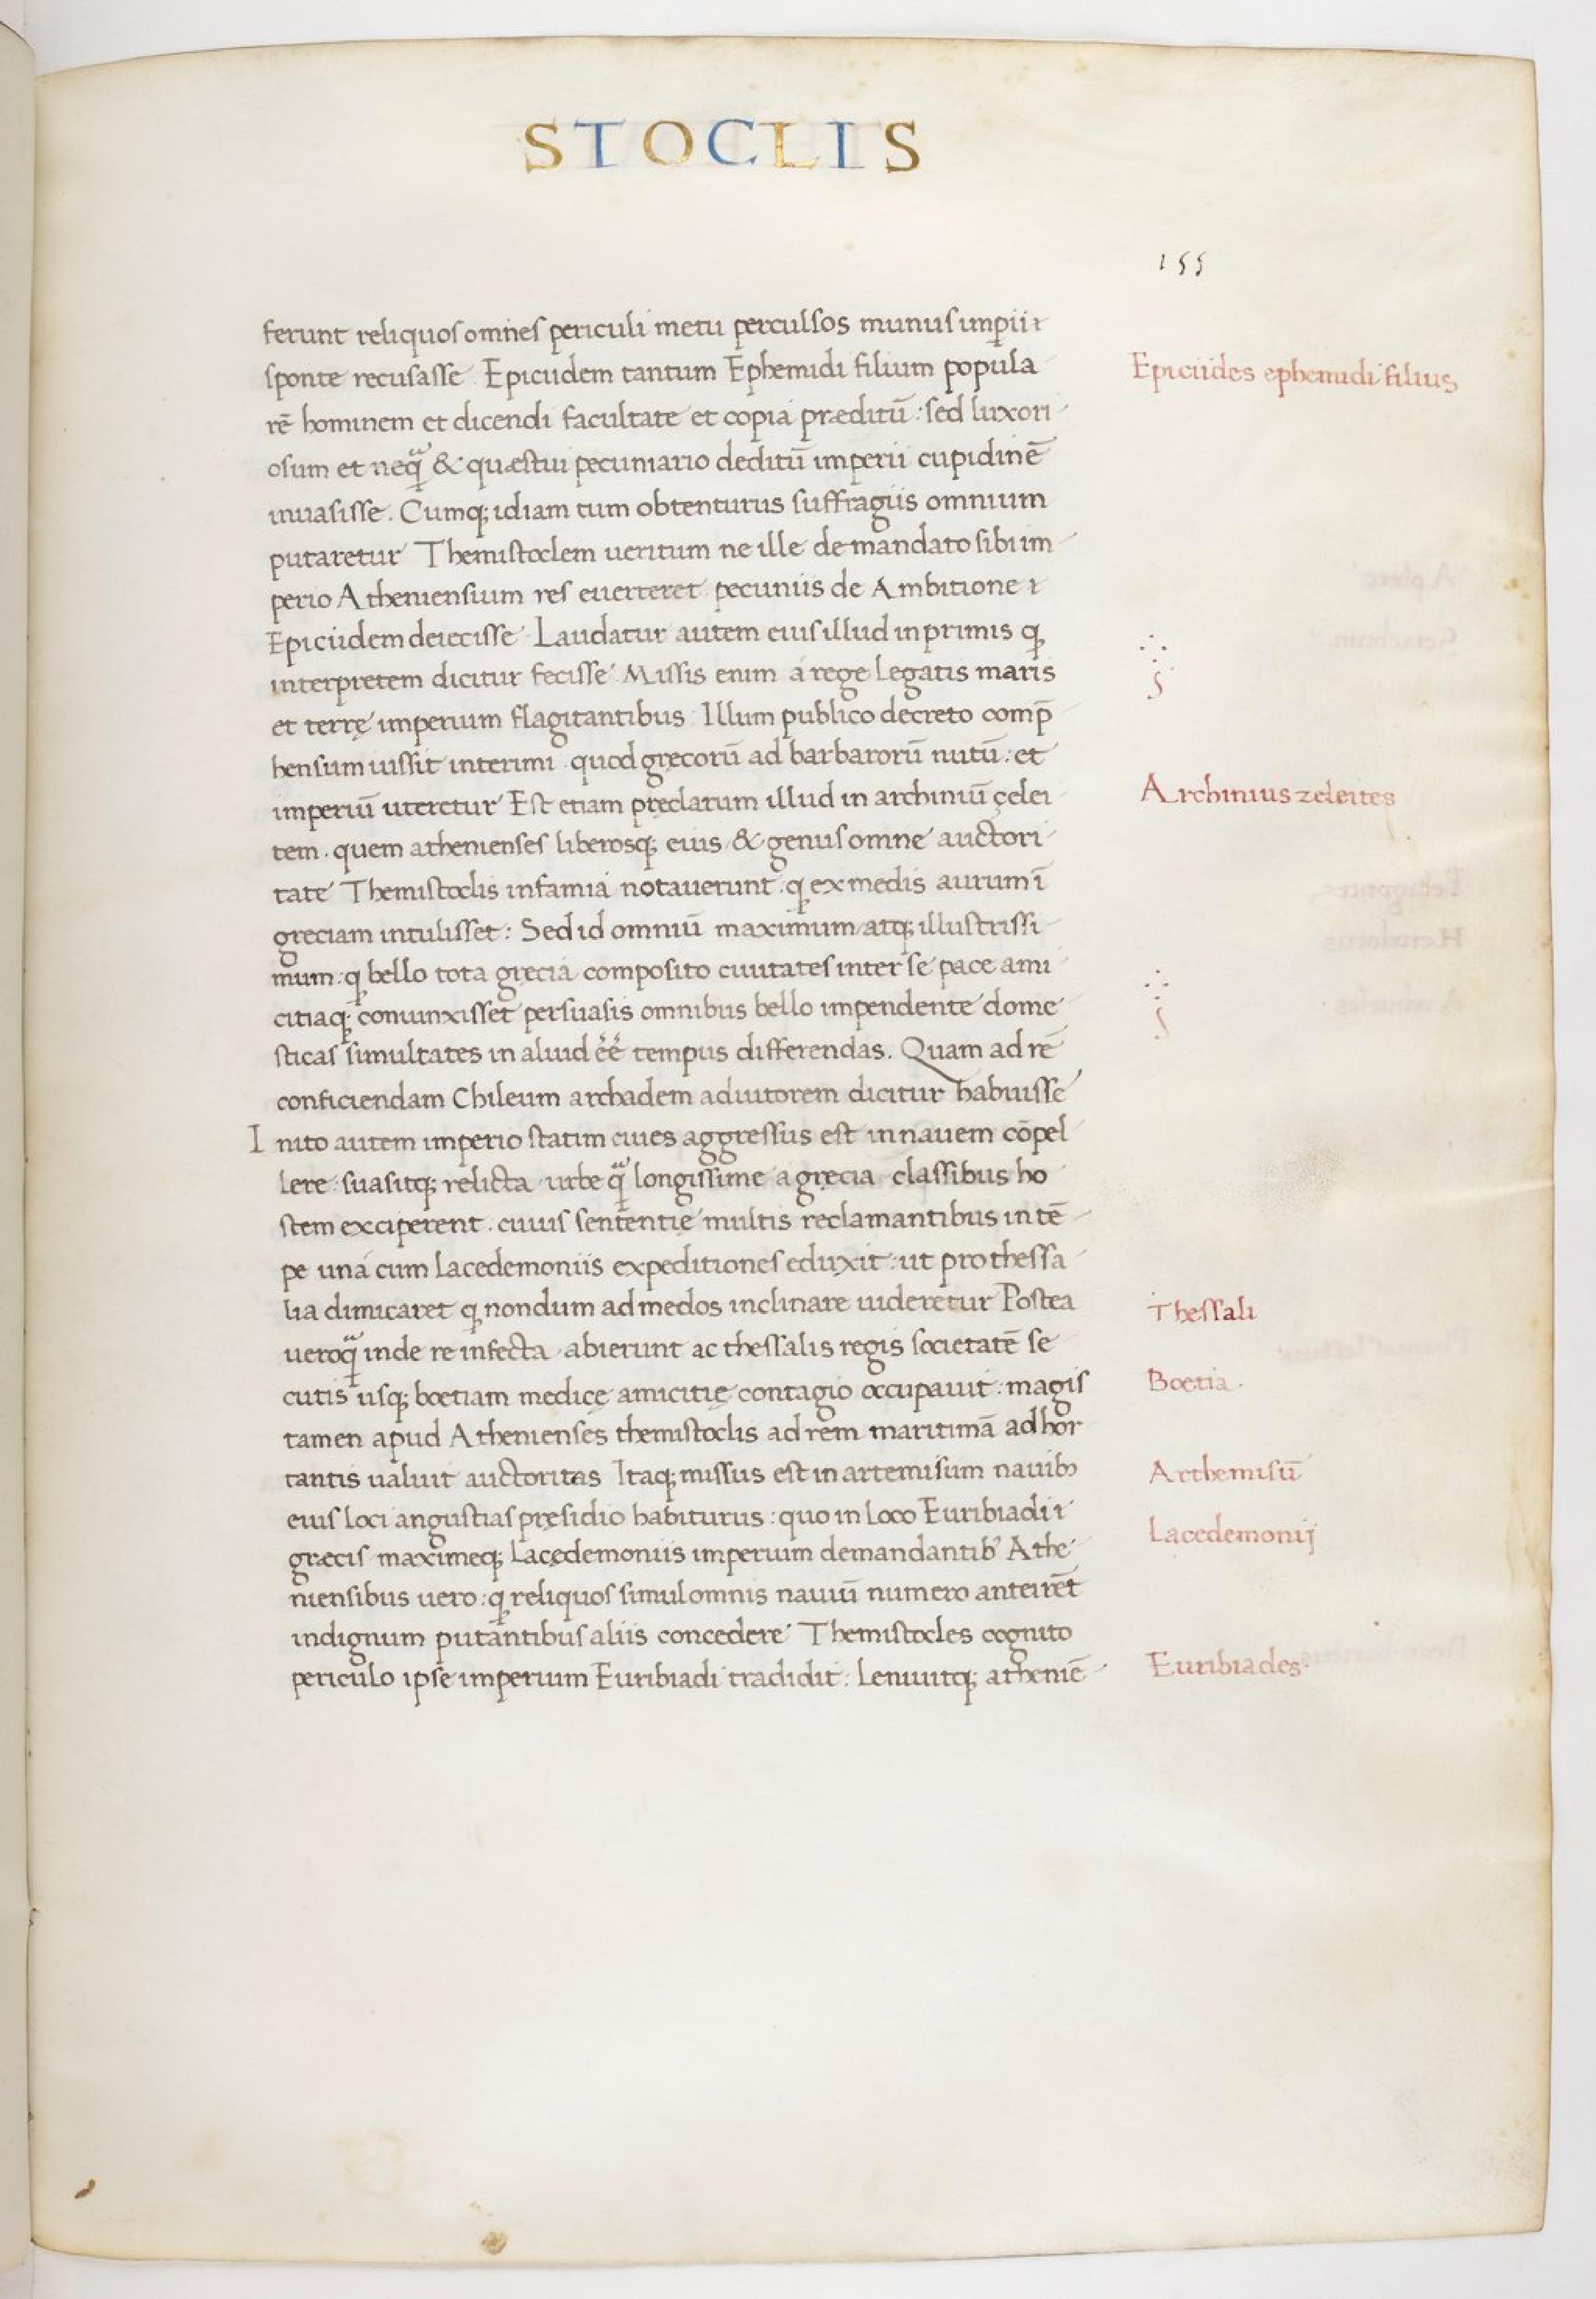 STOCLIS
155
ferunt reliquos omnes periculi metu perculsos munus imperii
sponte recusasse. Epiciidem tantum Ephemidi filium popula
rē hominem et dicendi facultate et copia præditū: sed luxori
Epiciides ephemidi filius
osum et neqᷓ & quæstui pecuniario deditū imperii cupidinē
inuasisse. Cumq; id iam tum obtenturus suffragiis omnium
putaretur Themistoclem ueritum ne ille demandato sibi im
perio Atheniensium res euerteret pecuniis de Ambitione
Epiciidem deiecisse. Laudatur autem eius illud in primis ꝙ
interpretem dicitur fecisse. Missis enim a rege Legatis maris
et terrę imperium flagitantibus. Illum publico decreto comp̄
hensum iussit interimi. quod gręcorū ad barbarorū nutū: et
imperiū uteretur. Est etiam pręclarum illud in archiniū çelei
Archinius zeleites
tem. quem athenienses liberosq; eius & genus omne auctori
tate Themistoclis infamia notauerunt. ꝙ ex medis aurum ī
greciam intulisset: Sed id omniū maximum atq; illustrissi
mum: ꝙ bello tota gręcia composito ciuitates inter se pace ami
citiaq; coniunxisset persuasis omnibus bello impendente dome
sticas simultates in aliud ēē tempus differendas. Quam ad rē
conficiendam Chileum archadem adiutorem dicitur habuisse
Inito autem imperio statim ciues aggressus est in nauem cōpel
lere: suasitq; relicta urbe qᷓ longissime a gręcia classibus ho
stem exciperent. cuius sententię multis reclamantibus in tē
pe una cum Lacedemoniis expeditiones eduxit: ut pro thessa
lia dimicaret ꝙ nondum ad medos inclinare uideretur Postea
Thessali
ueroqᷓ inde re infecta abierunt ac thessalis regis societatē se
cutis usq; boetiam medicę amicitię contagio occupauit: magis
Boetia.
tamen apud Athenienses themistoclis ad rem maritimā adhor
tantis ualuit auctoritas Itaq; missus est in artemisum nauibꝰ
Arthemisū
eius loci angustias pręsidio habiturus: quo in Loco Euribiadi
græcis maximeq; Lacędemoniis imperium demandantibꝰ Athe
Lacedemonij
niensibus uero: ꝙ reliquos simul omnis nauiū numero anteirēt
indignum putantibus aliis concedere Themistocles cognito
periculo ipse imperium Euribiadi tradidit: Leniuitq; atheniē
Euribiades.